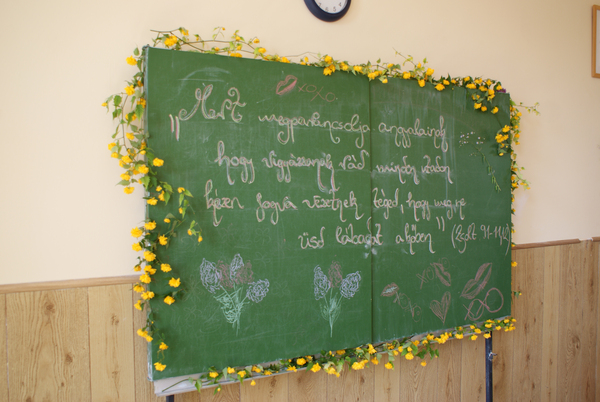 xoxo
„Mert megparancsolja angyalainak
hogy vigyázzanak rád minden utadon
kézen fogva vezetnek téged, hogy meg ne
üsd lábadat a kőben" (Zsolt 91-11,12)